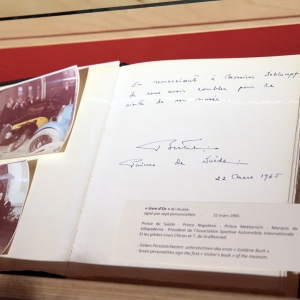 En remerciant à Messieurs Schlumpf
de nous avoir comblés pour ce
visite de son musée
Bertil
Prince de Suède
22 Mars 1965
« Livre d'Or » du musée
signé par sept personnalités - 22 mars 1965
Prince de Suède - Prince Napoléon - Prince Metternich - Marquis de
Villapadierna - Président de l'Association Sportive Automobile Internationale
Et les pilotes Louis Chiron et T. de Graffenried.
Sieben Persönlichkeiten unterzeichnen das erste « Goldene Buch »
Seven personalities sign the first « Visitor's book » of the museum.